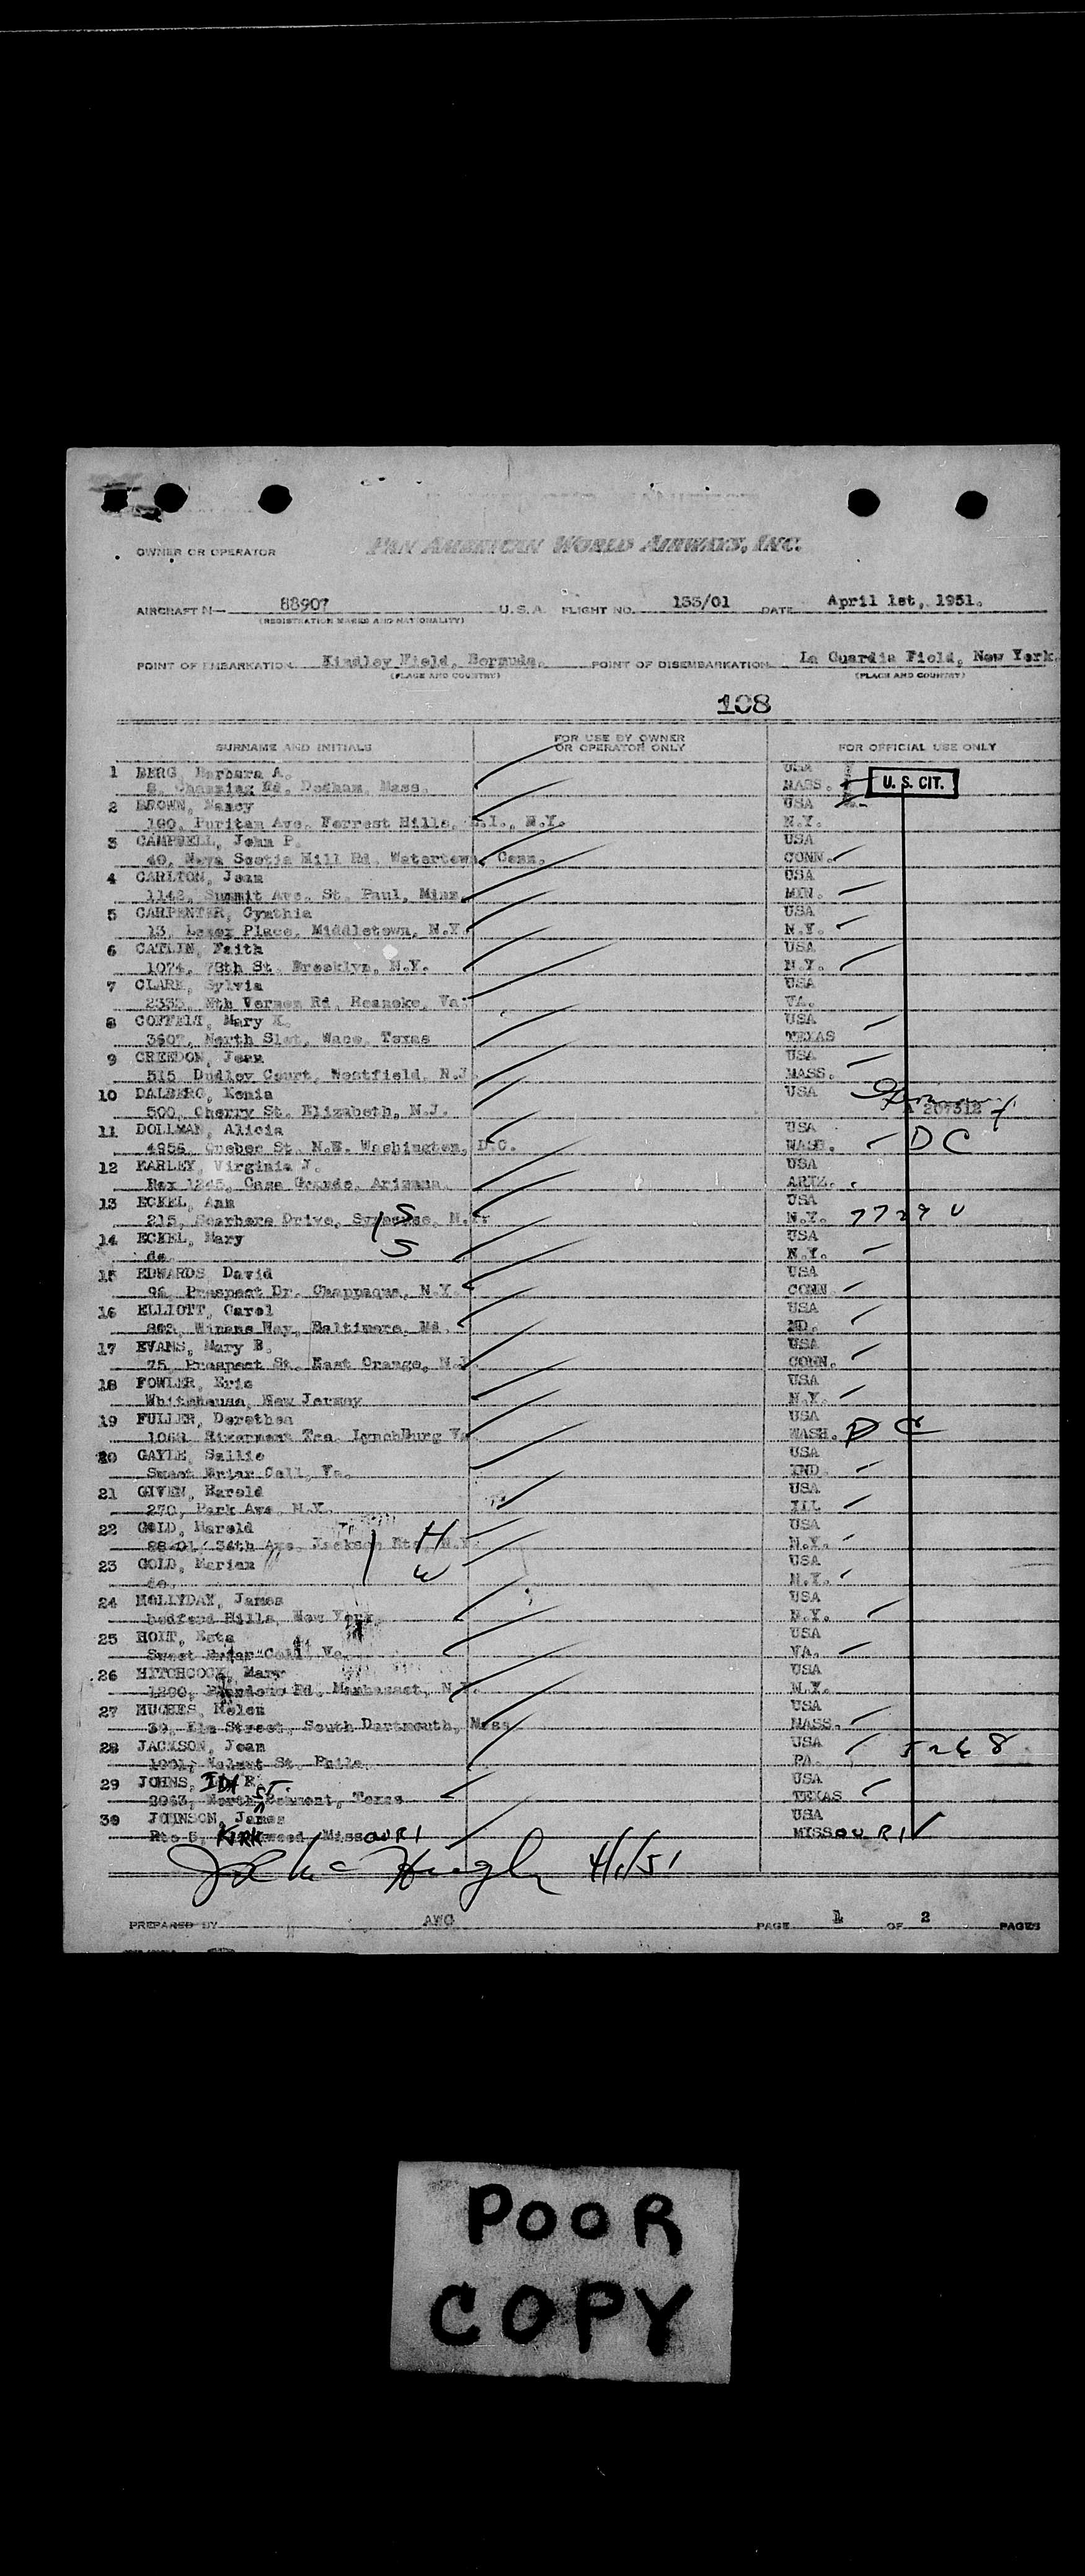 PAN AMERICAN WORLD AIRWAYS, INC.
OWNER OR OPERATOR
AIRCRAFT N— 88907 U.S.A. FLIGHT NO. 133/01 DATE April 1st, 1951.
(REGISTRATION MARKS AND NATIONALITY)
POINT OF EMBARKATION Kindley Field, Bermuda. POINT OF DISEMBARKATION La Guardia Field, New York.
(PLACE AND COUNTRY) (PLACE AND COUNTRY)
108
SURNAME AND INITIALS FOR USE BY OWNER OR OPERATOR ONLY FOR OFFICIAL USE ONLY
1 BERG, Barbara A. USA
Rd. Dedham, Mass. MASS. U. S. CIT.
2 BROWN, Nancy USA
190, Puritan Ave. Forrest Hills, L.I., N.Y. N.Y.
3 CAMPBELL, John P. USA
40, Nova Scotia Hill Rd. Watertown, Conn. CONN.
4 CARLTON, Jean USA
1142, Summit Ave. St. Paul, Minn. MIN.
5 CARPENTER, Cynthia USA
13, Place, Middletown, N.Y. N.Y.
6 CATLIN, Faith USA
1074, 78th St. Brooklyn, N.Y. N.Y.
7 CLARK, Sylvia USA
2333, Mth Vernon Rd, Roanoke, Va. VA.
8 COFFELT, Mary K. USA
North Waco, Texas TEXAS
9 CREEDON, Jean USA
515 Dudley Court, Westfield, N.J. MASS.
10 DALBERG, Kenia USA
500, Cherry St. Elizabeth, N.J. A 207312
11 DOLLMAN, Alicia USA
St. N.E. Washington, D.C. WASH. DC
12 EARLEY, Virginia J. USA
Box Casa Grande, Arizona. ARIZ.
13 ECKEL, Ann USA S
215, Drive, Syracuse, N.Y. N.Y. 7729 U
14 ECKEL, Mary USA S
do N.Y.
15 EDWARDS, David USA
Prospect Dr. Chappaqua, N.Y. CONN
16 ELLIOTT, Carol USA
Winans Way, Baltimore, Md. MD.
17 EVANS, Mary B. USA
75 Prospect St. East Orange, N.J. CONN.
18 FOWLER, Eric USA
Whitehouse, New Jersey N.Y.
19 FULLER, Dorothea USA
Rivermont Tea, Lynchburg Va. WASH. DC
20 GAYLE, Sallie USA
Sweet Briar Coll, Va. IND.
21 GIVEN, Harold USA
270, Park Ave, N.Y. ILL
22 GOLD, Harold USA H
88-01, 34th Ave. Jackson Hts, N.Y. N.Y.
23 GOLD, Marian USA W
do. N.Y.
24 HOLLYDAY, James USA
Bedford Hills, New York. N.Y.
25 HOIT, USA
Sweet Briar Coll, Va. VA.
26 HITCHCOCK, Mary USA
1200, Rd. Manhasset, N.Y. N.Y.
27 HUGHES, Helen USA
39, Elm Street, South Dartmouth, Mass. MASS.
28 JACKSON, Joan USA
Walnut St. Phila. PA. 5268
29 JOHNS, IDA R. USA
2043, North ST. Belmont, Texas TEXAS
30 JOHNSON, James USA
Rte 5, KIRKwood, MissOURI MISSOURI
4/1/51
PREPARED BY AWO PAGE 1 OF 2 PAGES
POOR
COPY